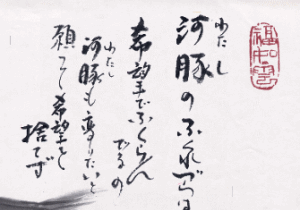 わたし
河豚のふくれづらは
希望までふくらん
でるの
わたし
河豚も変りたいと
願って希望を
捨てず